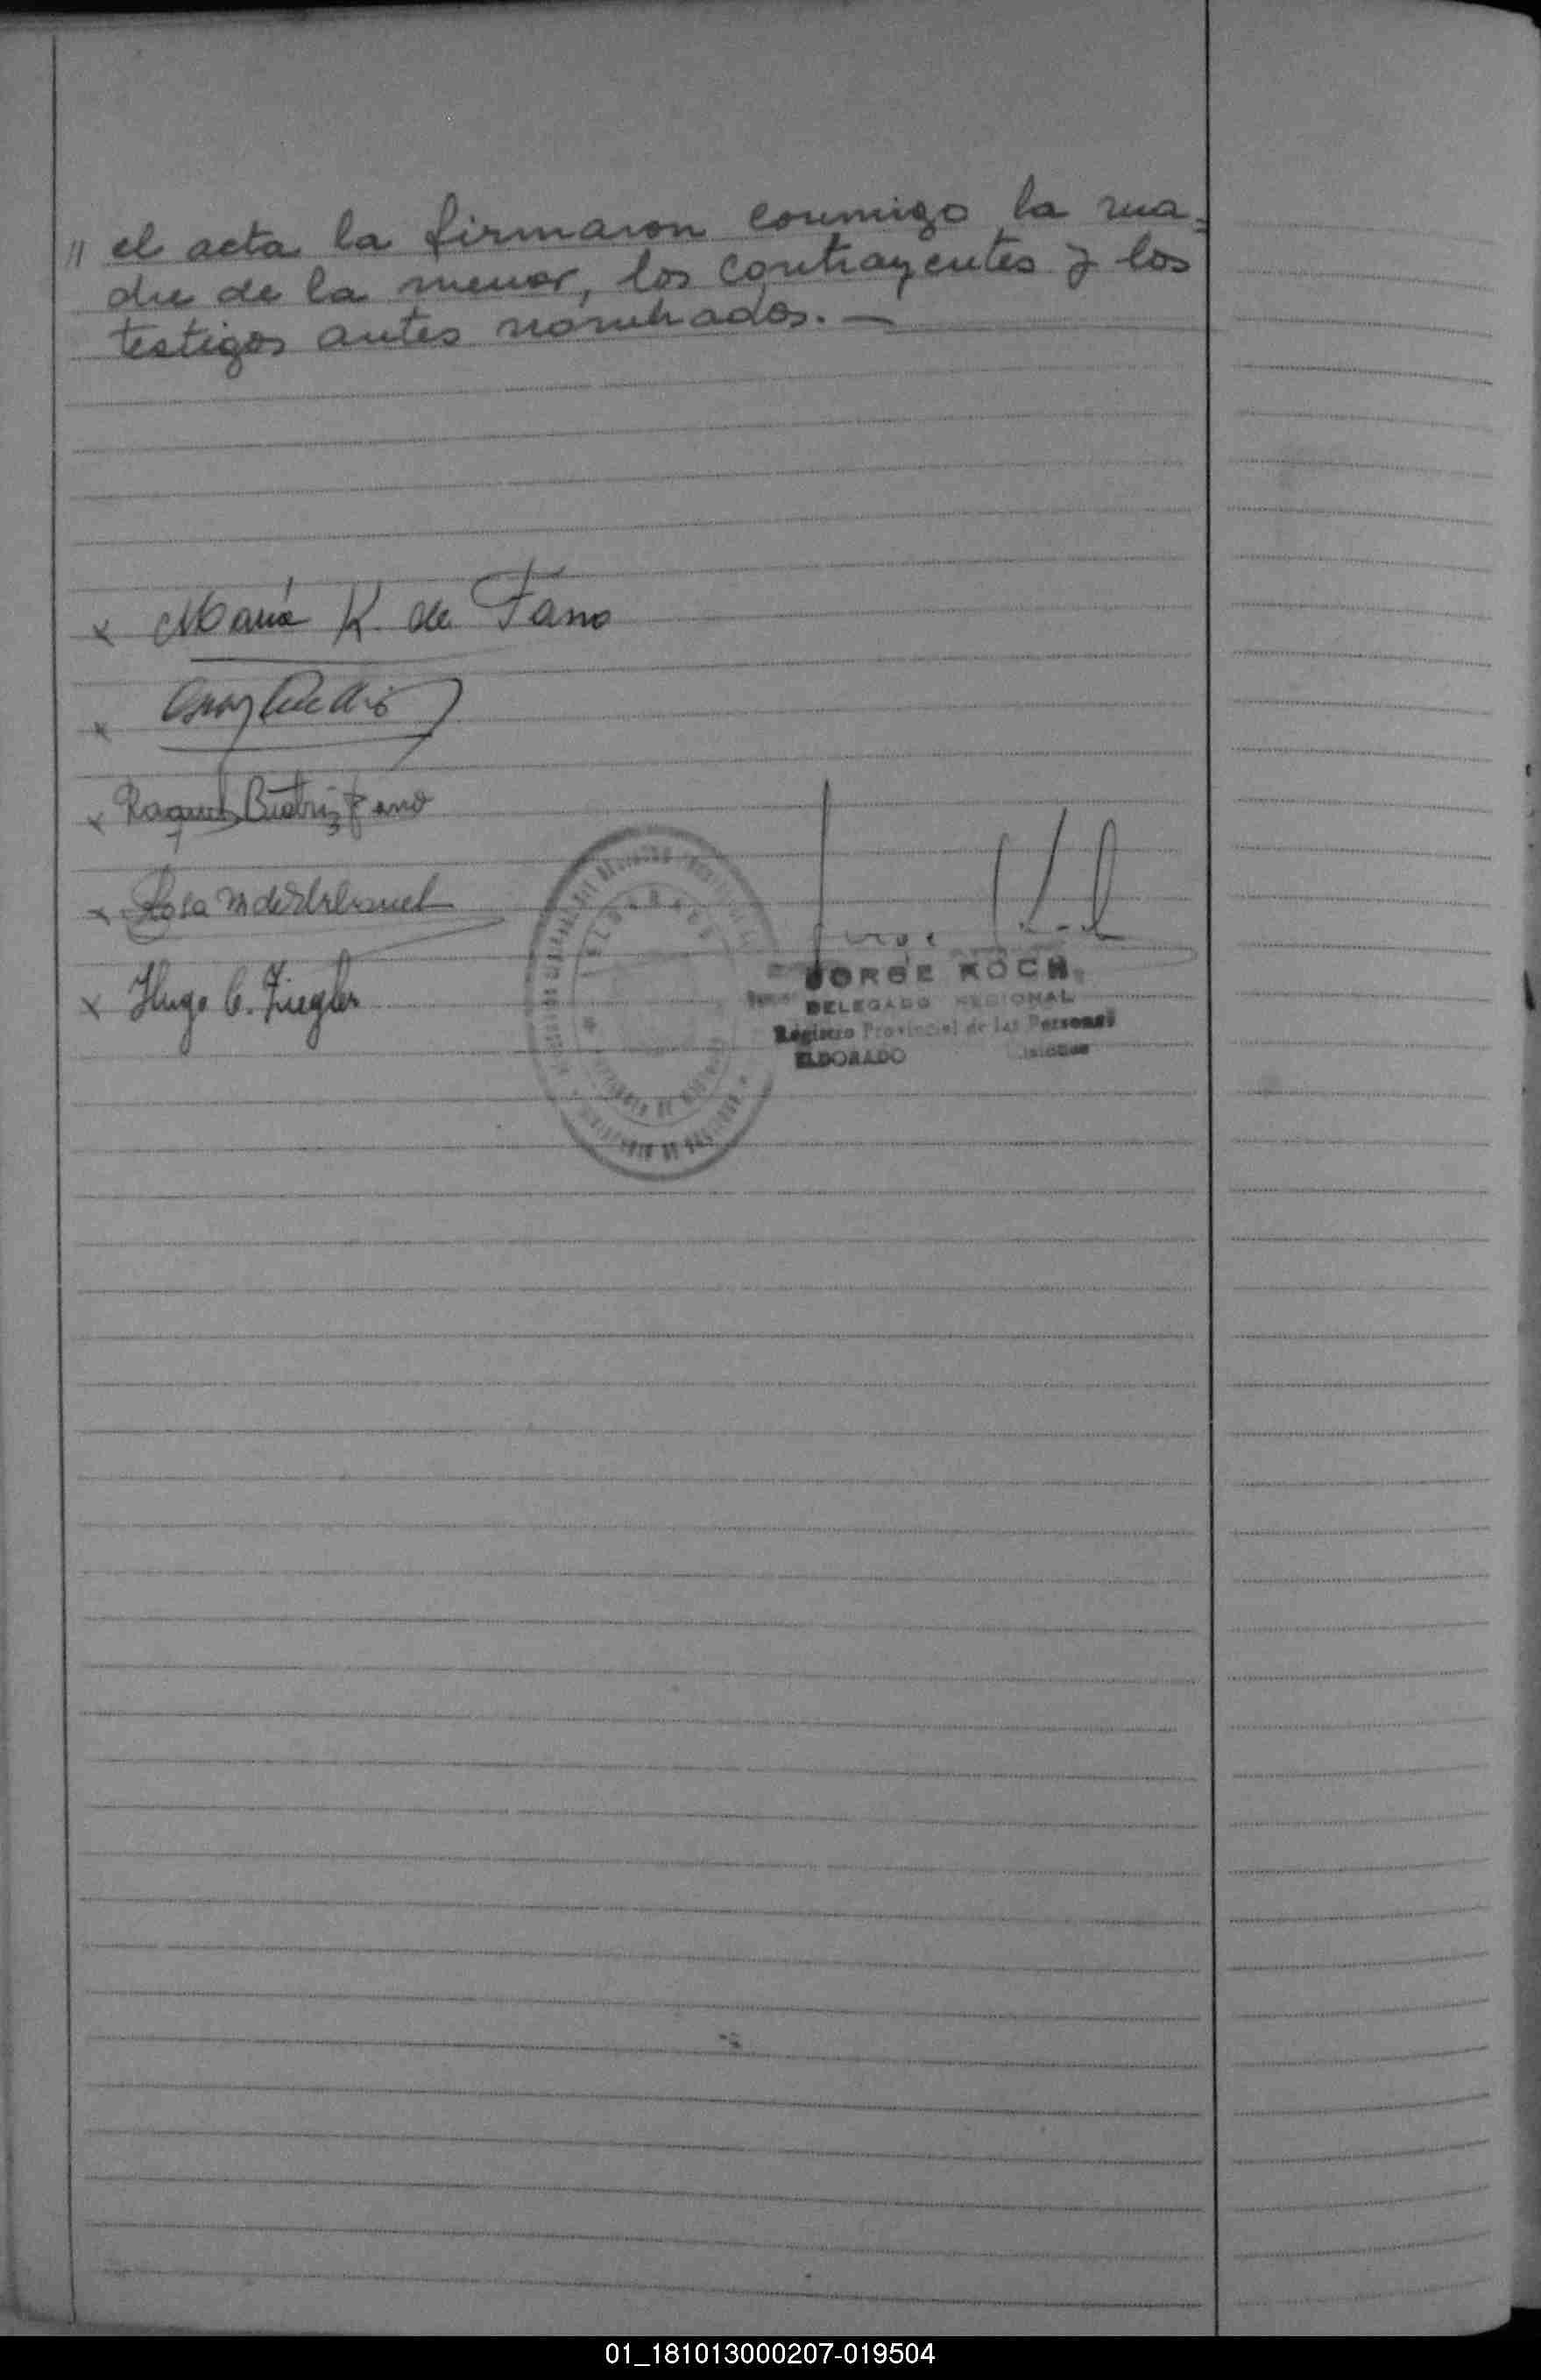 " el acta la firmaron conmigo la ma=
dre de la menor, los contrayentes y los
testigos antes nombrados. —
x María K. de Fano
x
x Raquel Beatriz Fano
x Rosa M de
x Hugo C. Ziegler
Jorge Koch
JORGE KOCH
DELEGADO REGIONAL
Registro Provincial de las Personas
ELDORADO Misiones
ELDORADO
01_181013000207-019504